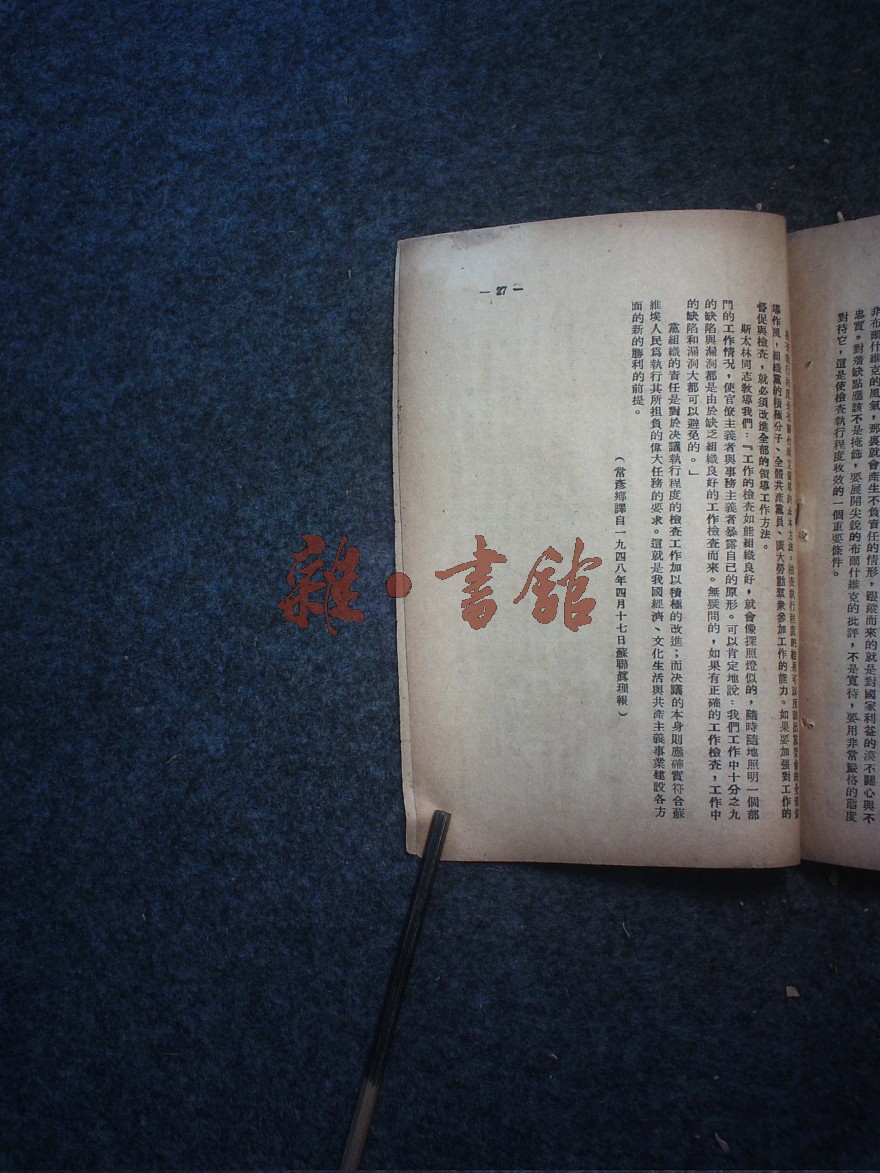 非布爾什維克的風氣，那裏就會產生不負責任的情形，跟蹤而來的就是對國家利益的漠不關心與不
忠實。對着缺點應該不是掩飾，要展開尖銳的布爾什維克的批評，不是寬待，要用非常嚴格的態度
對待它，這是使檢查執行程度收效的一個重要條件。
導作風，組織黨的積極分子、全體共產黨員、廣大勞動羣衆參加工作的能力。如果要加強對工作的
督促與檢查，就必須改進全部的領導工作方法。
斯太林同志敎導我們：『工作的檢查如能組織良好，就會像探照燈似的，隨時隨地照明一個部
門的工作情況，使官僚主義者與事務主義者暴露自己的原形。可以肯定地說：我們工作中十分之九
的缺陷與漏洞都是由於缺乏組織良好的工作檢查而來。無疑問的，如果有正確的工作檢查，工作中
的缺陷和漏洞大都可以避免的。」
黨組織的責任是對於决議執行程度的檢查工作加以積極的改進；而决議的本身則應確實符合蘇
維埃人民爲執行其所担負的偉大任務的要求。這就是我國經濟、文化生活與共產主義事業建設各方
面的新的勝利的前提。
（常彥鄉譯自一九四八年四月十七日蘇聯眞理報）
— 27 —
雜·書館